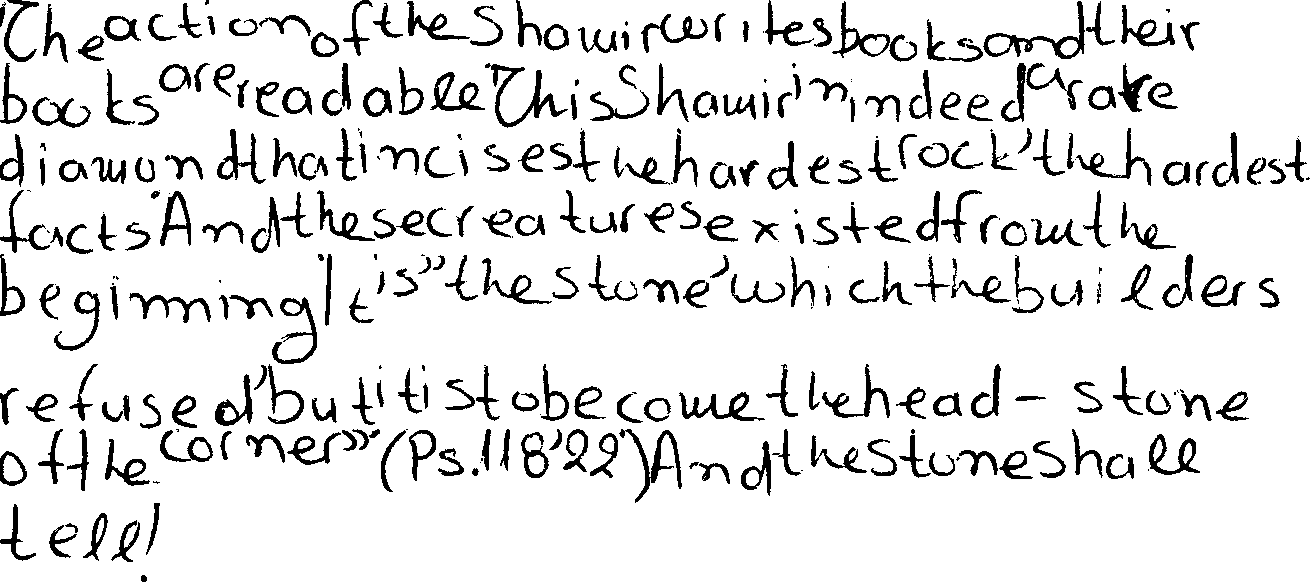 The action of the Shamir writes books and their
books are readable This Shamir in indeed a rare
diamond that incises the hardest rock' the hardest
facts' And these creatures existed from the
beginning It is" the stone' which the builders
refused' but it is to become the head - stone
of the corner" (Ps.118'22') And the stone shall
tell!